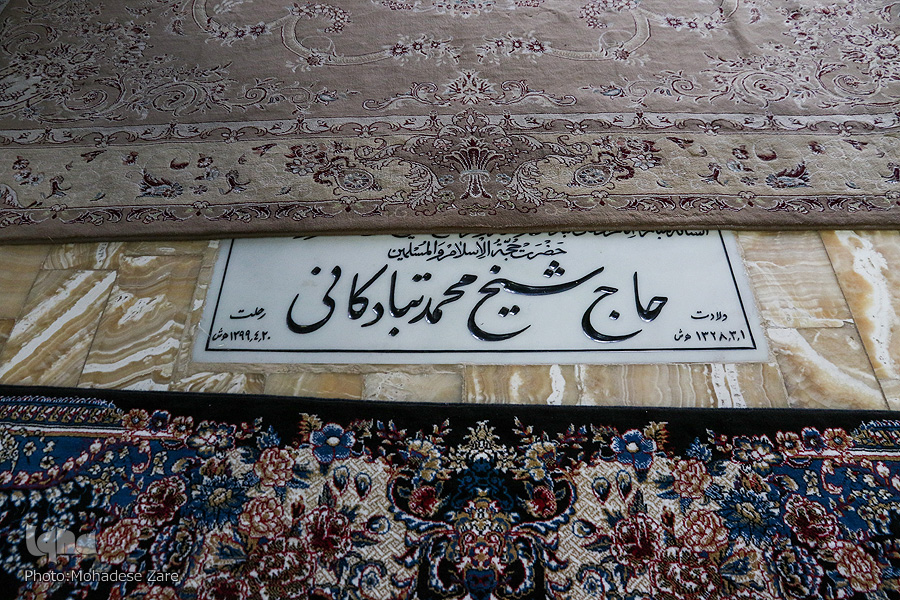 حضرت حجة الاسلام والمسلمین
حاج شیخ محمد تبادکانی
ولادت
۱۳۲۸,۳,۱ ه‍.ش
رحلت
۱۳۹۹,۴,۲۰ ه‍.ش
iqna
Photo:Mohadese Zare